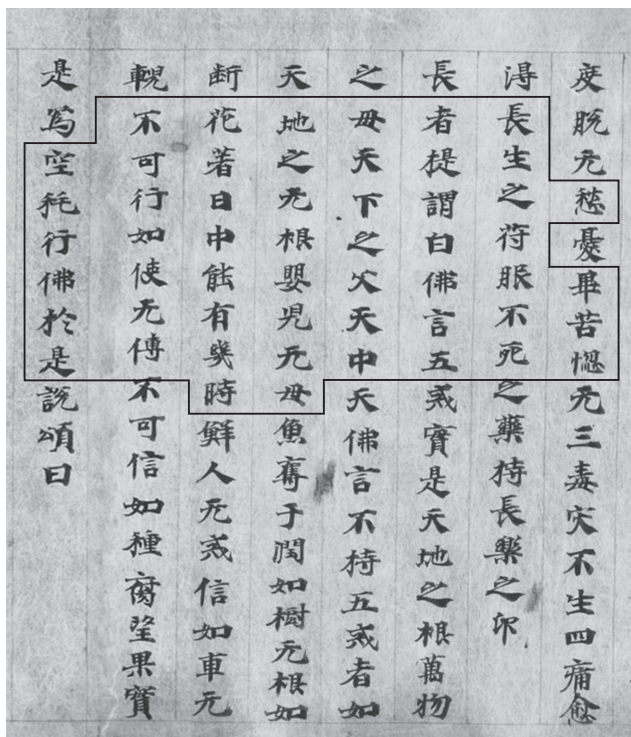 度脱无愁憂畢苦惱无三毒灾不生四痛愈
淂長生之苻服不死之藥持長樂之印
長者提謂白佛言五戒實是天地之根萬物
之母天下之父天中天佛言不持五戒者如
天地之无根嬰児无母魚奪于潤如樹无根如
断花著日中能有幾時鮮人无戒信如車无
輗不可行如使无傳不可信如種腐望果實
是為空秏行佛於是説頌曰